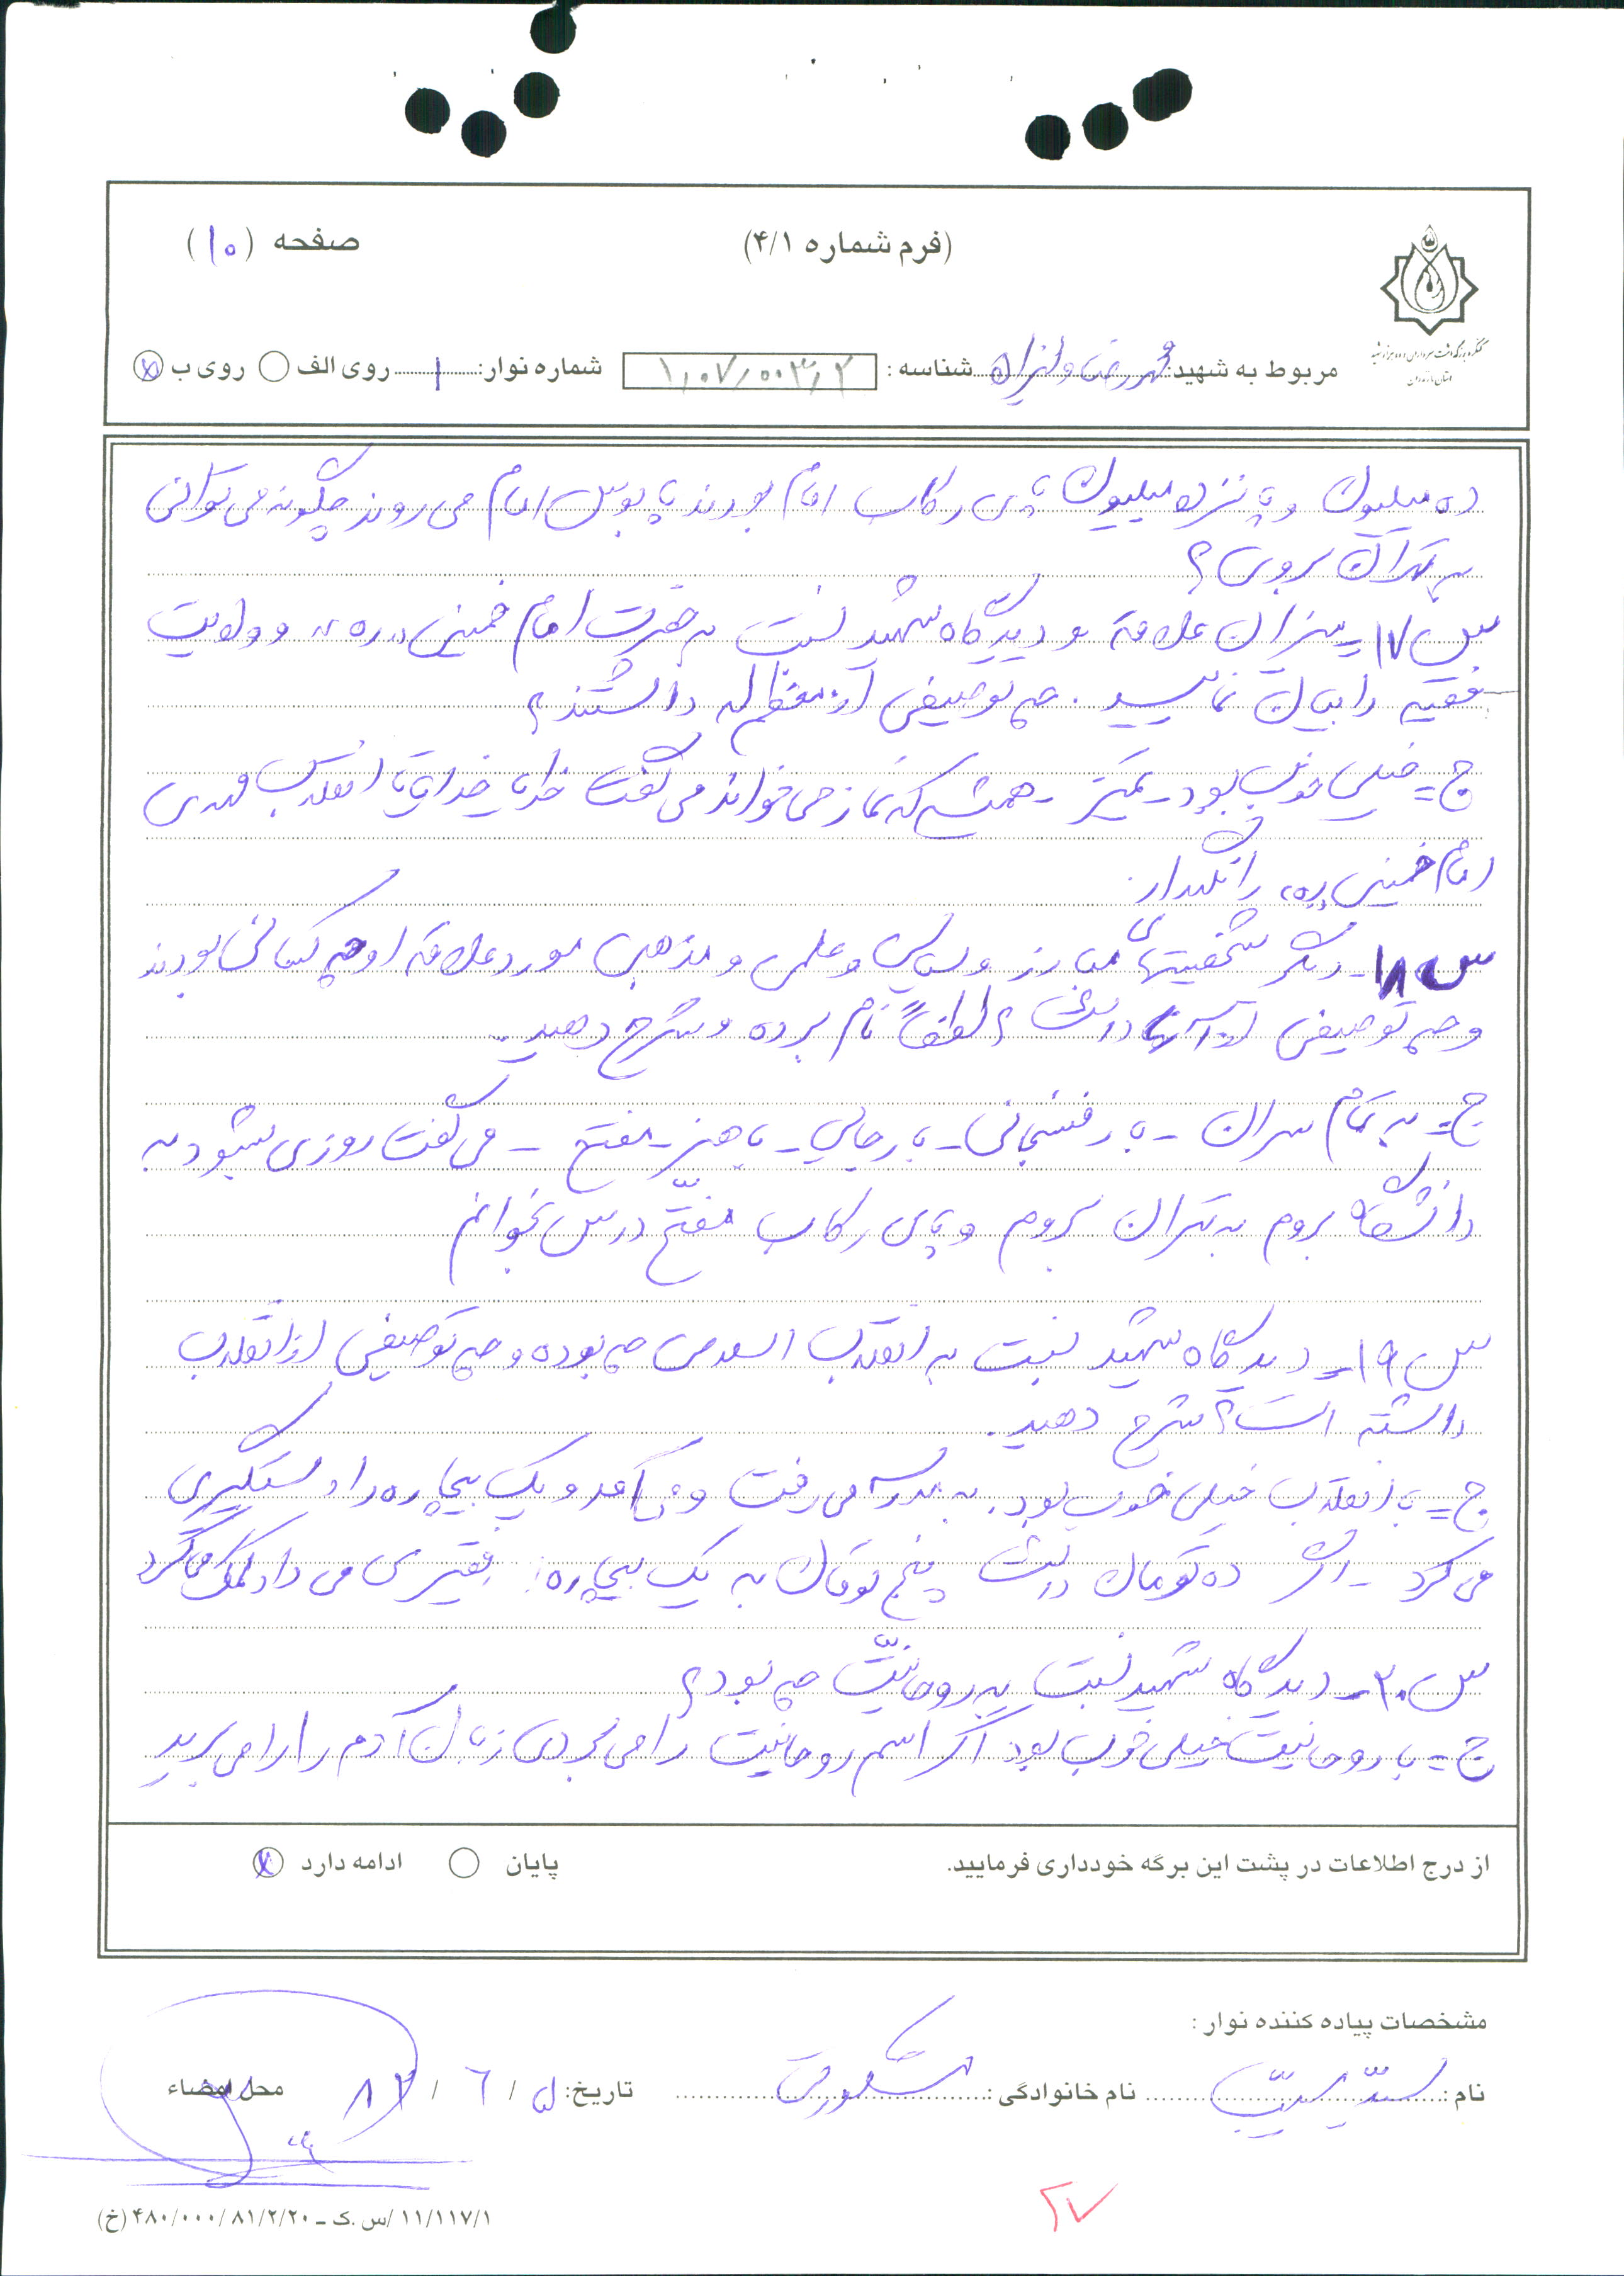 (فرم شماره ۴/۱)
صفحه (۱۰)
کنگره بزرگداشت سرداران و ده هزار شهید
استان مازندران
مربوط به شهید: محمدرضا شناسه: ۱٫۰۷٫۰۰۳٫۲ شماره نوار: ۱ روی الف روی ب
ده میلیون و پانزده میلیون پای رکاب امام بودند پابوس امام می روند چگونه می توانی
به تهران بروی؟
س ۱۷- میزان علاقه و دیدگاه شهید نسبت به حضرت امام خمینی «ره» و ولایت
فقیه را بیان نمائید. چه توصیفی از معظم له داشتند؟
ج- خیلی خوب بود - همیشه که نماز می خواند می گفت خدایا خدایا تا انقلاب مهدی
امام خمینی «ره» را نگهدار.
س ۱۸- دیگر شخصیتهای مبارز و سیاسی و علمی و مذهبی مورد علاقه او چه کسانی بودند
و چه توصیفی از آنها داشت؟ لطفاً نام برده و شرح دهید.
ج- به تمام سران - با رفسنجانی - با رجایی - باهنر - مفتح - می گفت روزی میشود به
دانشگاه بروم به تهران بروم و پای رکاب مفتّح درس بخوانم
س ۱۹- دیدگاه شهید نسبت به انقلاب اسلامی چه بوده و چه توصیفی از انقلاب
داشته است؟ شرح دهید.
ج- با انقلاب خیلی خوب بود. به مدرسه می رفت و می آمد و یک بیچاره را دستگیری
می کرد - اگر ده تومان داشت پنج تومان به یک بیچاره: فقیری می داد کمک می کرد
س ۲۰- دیدگاه شهید نسبت به روحانیّت چه بود؟
ج- با روحانیت خیلی خوب بود اگر اسم روحانیت را می بردی زبان آدم را می برید
از درج اطلاعات در پشت این برگه خودداری فرمایید.
پایان ادامه دارد
مشخصات پیاده کننده نوار:
نام: سیّد نام خانوادگی: تاریخ: ۵ / ۶ / ۸۲ محل امضاء
۲۷
۱۱/۱۱۷/۱/س.ک ــ ۴۸۰/۰۰۰/۸۱/۲/۲۰ (خ)